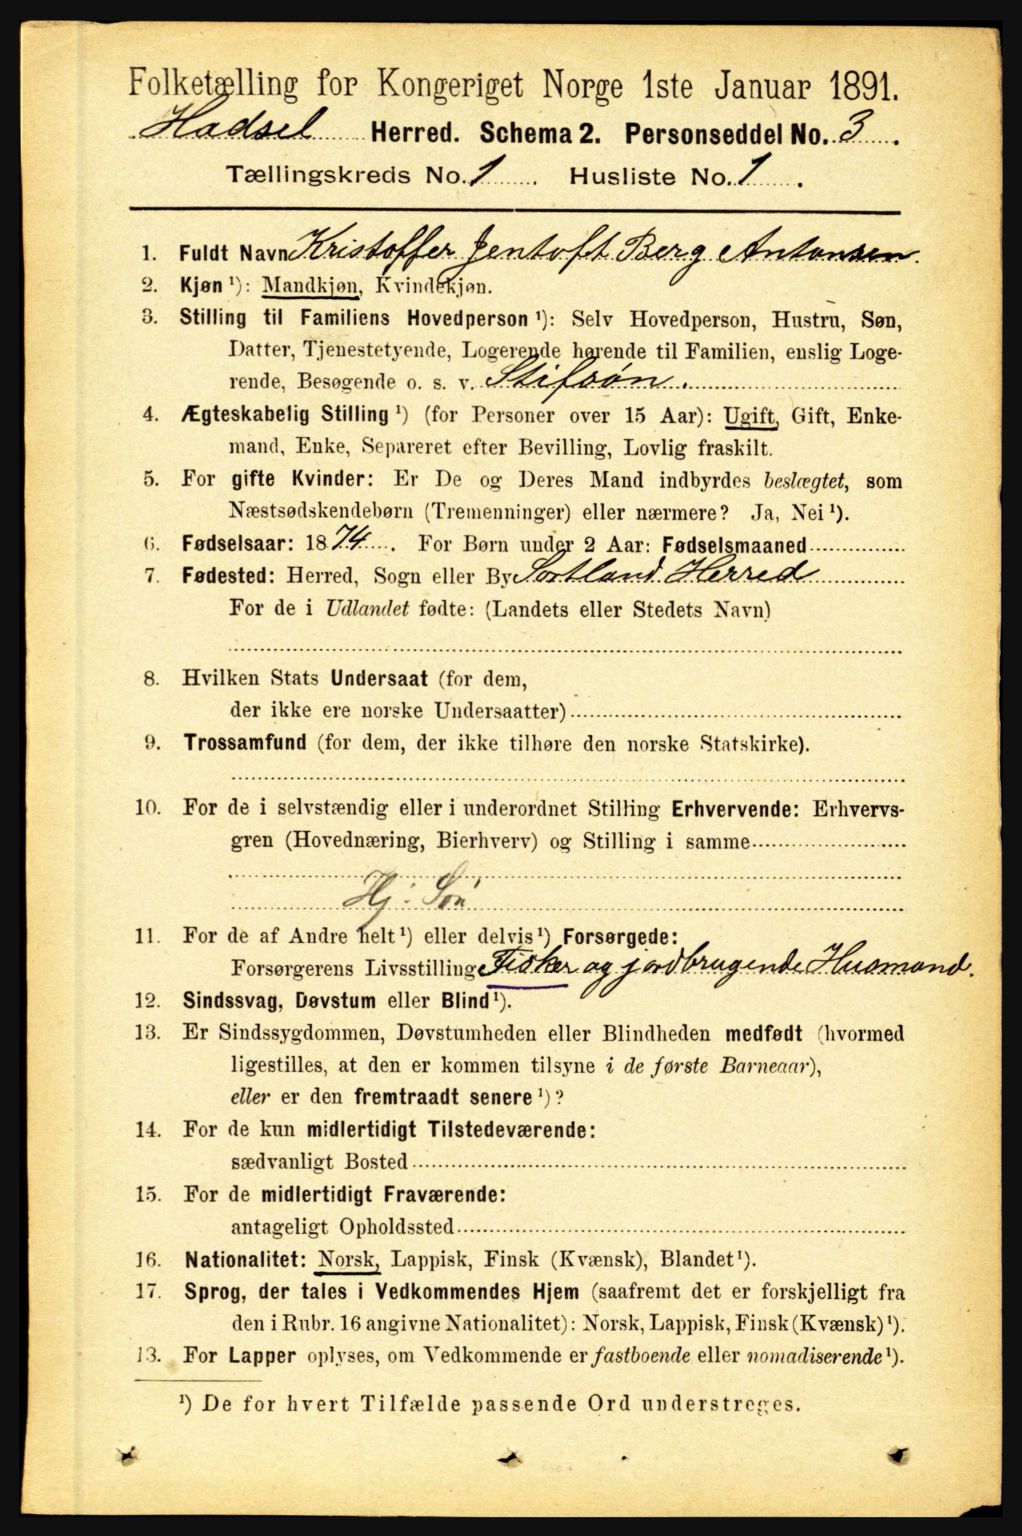 Folketælling for Kongeriget Norge 1ste Januar 1891.
Hadsel Herred. Schema 2. Personseddel No. 3.
Tællingskreds No. 1. Husliste No. 1.
1. Fuldt Navn Kristoffer Jentoft Berg Antonsen.
2. Kjøn ¹): Mandkjøn, Kvindekjøn.
3. Stilling til Familiens Hovedperson ¹): Selv Hovedperson, Hustru, Søn,
Datter, Tjenestetyende, Logerende hørende til Familien, enslig Loge-
rende, Besøgende o. s. v. Stifsøn.
4. Ægteskabelig Stilling ¹) (for Personer over 15 Aar): Ugift, Gift, Enke-
mand, Enke, Separeret efter Bevilling, Lovlig fraskilt.
5. For gifte Kvinder: Er De og Deres Mand indbyrdes beslægtet, som
Næstsødskendebørn (Tremenninger) eller nærmere? Ja, Nei ¹).
6. Fødselsaar: 1874. For Børn under 2 Aar: Fødselsmaaned
7. Fødested: Herred, Sogn eller By Sortland Herred
For de i Udlandet fødte: (Landets eller Stedets Navn)
8. Hvilken Stats Undersaat (for dem,
der ikke ere norske Undersaatter)
9. Trossamfund (for dem, der ikke tilhøre den norske Statskirke).
10. For de i selvstændig eller i underordnet Stilling Erhvervende: Erhvervs-
gren (Hovednæring, Bierhverv) og Stilling i samme
Hj: Søn
11. For de af Andre helt ¹) eller delvis ¹) Forsørgede:
Forsørgerens Livsstilling Fisker og jordbrugende Husmand.
12. Sindssvag, Døvstum eller Blind ¹).
13. Er Sindssygdommen, Døvstumheden eller Blindheden medfødt (hvormed
ligestilles, at den er kommen tilsyne i de første Barneaar),
eller er den fremtraadt senere ¹)?
14. For de kun midlertidigt Tilstedeværende:
sædvanligt Bosted
15. For de midlertidigt Fraværende:
antageligt Opholdssted
16. Nationalitet: Norsk, Lappisk, Finsk (Kvænsk), Blandet ¹).
17. Sprog, der tales i Vedkommendes Hjem (saafremt det er forskjelligt fra
den i Rubr. 16 angivne Nationalitet): Norsk, Lappisk, Finsk (Kvænsk) ¹).
13. For Lapper oplyses, om Vedkommende er fastboende eller nomadiserende ¹).
¹) De for hvert Tilfælde passende Ord understreges.